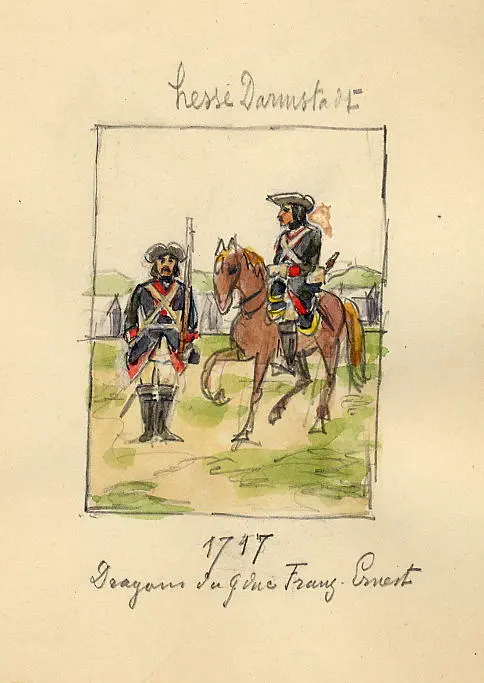 hesse Darmstadt
1717
Dragons du G duc Franz. Ernest